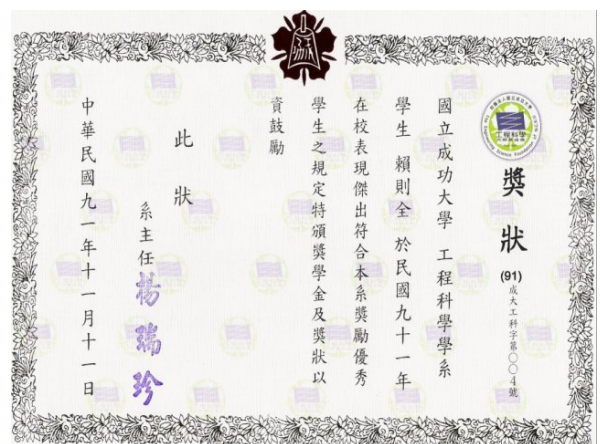 獎狀
(91)成大工科字第○○4號
國立成功大學 工程科學學系
學生 賴則全 於民國九十一年
在校表現傑出符合本系獎勵優秀
學生之規定特頒獎學金及獎狀以
資鼓勵
此狀
系主任 楊瑞珍
中華民國九一年十一月十一日
工程科學